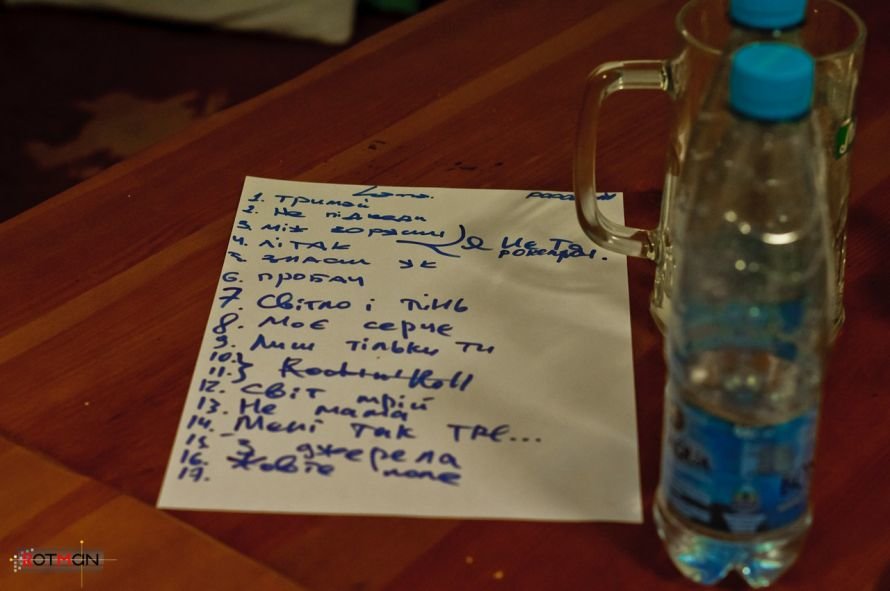 1. Тримай
2. Не підведи
3. Між зорями
4. Літак
Я не та
5. Знаєш як
6. Пробач
7. Світло і тінь
8. Моє серце
9. Лиш тільки ти
10.}
11.} Rock'n'Roll
12. Світ мрій
13. Не мала
14. Мені так тре...
15. З джерела
16. Жовте поле
17.
AQUA
ROTMAN